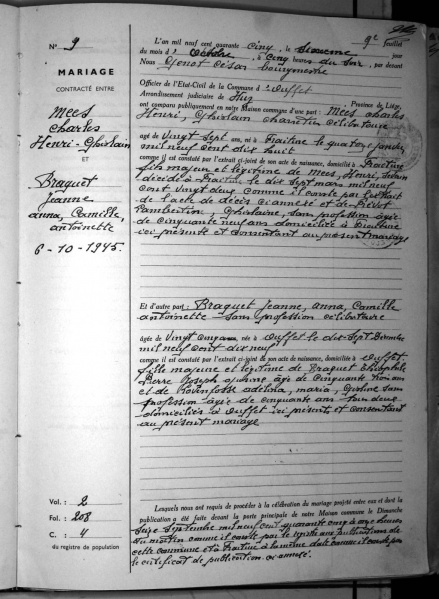 N° 9
MARIAGE
CONTRACTÉ ENTRE
Mees
Charles
Henri-Ghislain
ET
Braquet
Jeanne
anna, Camille,
antoinette
6-10-1945.
Vol. : 2
Fol. : 208
C. : 4
du registre de population
9e feuillet
L'an mil neuf cent quarante cinq, le sixième jour
du mois d'Octobre, à cinq heures du soir, par devant
Nous Genot César bourgmestre
Officier de l'Etat-Civil de la Commune d'Ouffet
Arrondissement judiciaire de Huy Province de Liège,
ont comparu publiquement en notre Maison commune d'une part : Mees Charles
Henri, Ghislain célibataire
âgé de Vingt Sept ans, né à Fraiture le quatorze
mil neuf cent dix huit
comme il est constaté par l'extrait ci-joint de son acte de naissance, domicilié à Fraiture
fils majeur et légitime de Mees, Henri,
décédé à Fraiture le dix Sept mars mil neuf
cent vingt deux comme il conste par l'extrait
de l'acte de décès ci annexé et de Prévot
Ghislaine, sans profession âgée
de cinquante neuf ans domiciliée à Fraiture
ici présente et consentant au présent mariage
Et d'autre part : Braquet Jeanne, Anna, Camille
antoinette sans profession célibataire
âgée de Vingt cinq ans, née à Ouffet le dix-Sept Décembre
mil neuf cent dix neuf
comme il est constaté par l'extrait ci-joint de son acte de naissance, domiciliée à Ouffet
fille majeure et légitime de Braquet Théophile
Pierre Joseph âgé de Cinquante trois ans
et de adelina, maria, sans
profession âgée de cinquante ans tous deux
domiciliés à Ouffet ici présents et consentant
au présent mariage
Lesquels nous ont requis de procéder à la célébration du mariage projeté entre eux et dont la
publication a été faite devant la porte principale de notre Maison commune le Dimanche
Seize Septembre mil neuf cent quarante cinq à onze heures
du matin comme il conste par le registre aux publications de
cette commune et à Fraiture à la même date comme il conste par
le certificat de publication ci annexé.